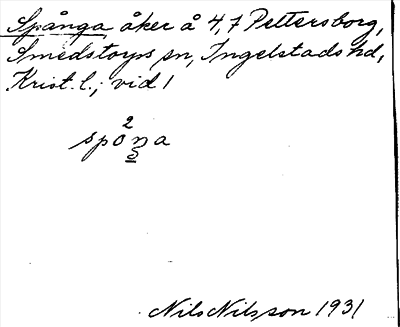 Spånga åker å 4,7 Pettersborg,
Smedstorps sn, Ingelstads hd,
Krist. l.; vid 1
2
spoŋa
Nils Nilsson 1931